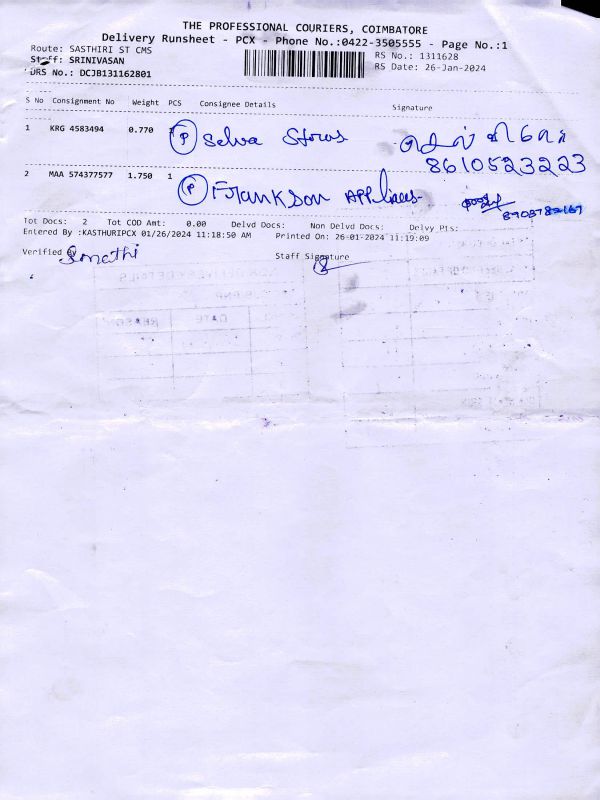 THE PROFESSIONAL COURIERS, COIMBATORE
Delivery Runsheet - PCX - Phone No.:0422-3505555 - Page No.:1
Route: SASTHIRI ST CMS RS No.: 1311628
Staff: SRINIVASAN RS Date: 26-Jan-2024
DRS No.: DCJB131162801
S No Consignment No Weight PCS Consignee Details Signature
1 KRG 4583494 0.770 P Selva Stores
8610523223
2 MAA 574377577 1.750 1 P Frankson Appliances
8903782167
Tot Docs: 2 Tot COD Amt: 0.00 Delvd Docs: Non Delvd Docs: Delvy Pts:
Entered By :KASTHURIPCX 01/26/2024 11:18:50 AM Printed On: 26-01-2024 11:19:09
Verified By Staff Signature